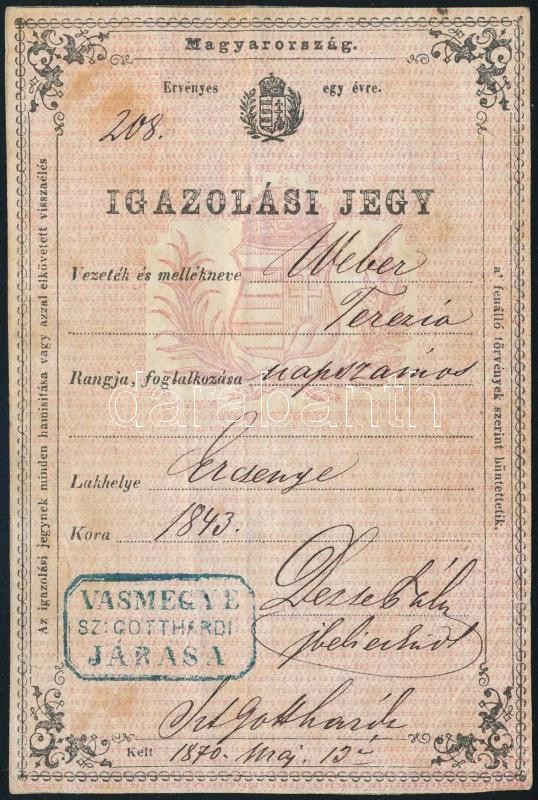 Magyarország.
Érvényes egy évre.
208.
IGAZOLÁSI JEGY
Vezeték és mellékneve Weber
Terezia
Rangja, foglalkozása napszámos
Lakhelye Ercsenye
Kora 1843.
VASMEGYE
SZ: GOTTHARDI
JÁRASA
Szt Gotthardt
Kelt 1870. Maj. 13
Az igazolási jegynek minden hamisítása vagy azzal elkövetett visszaélés
a' fenálló törvények szerint büntettetik.
darabanth